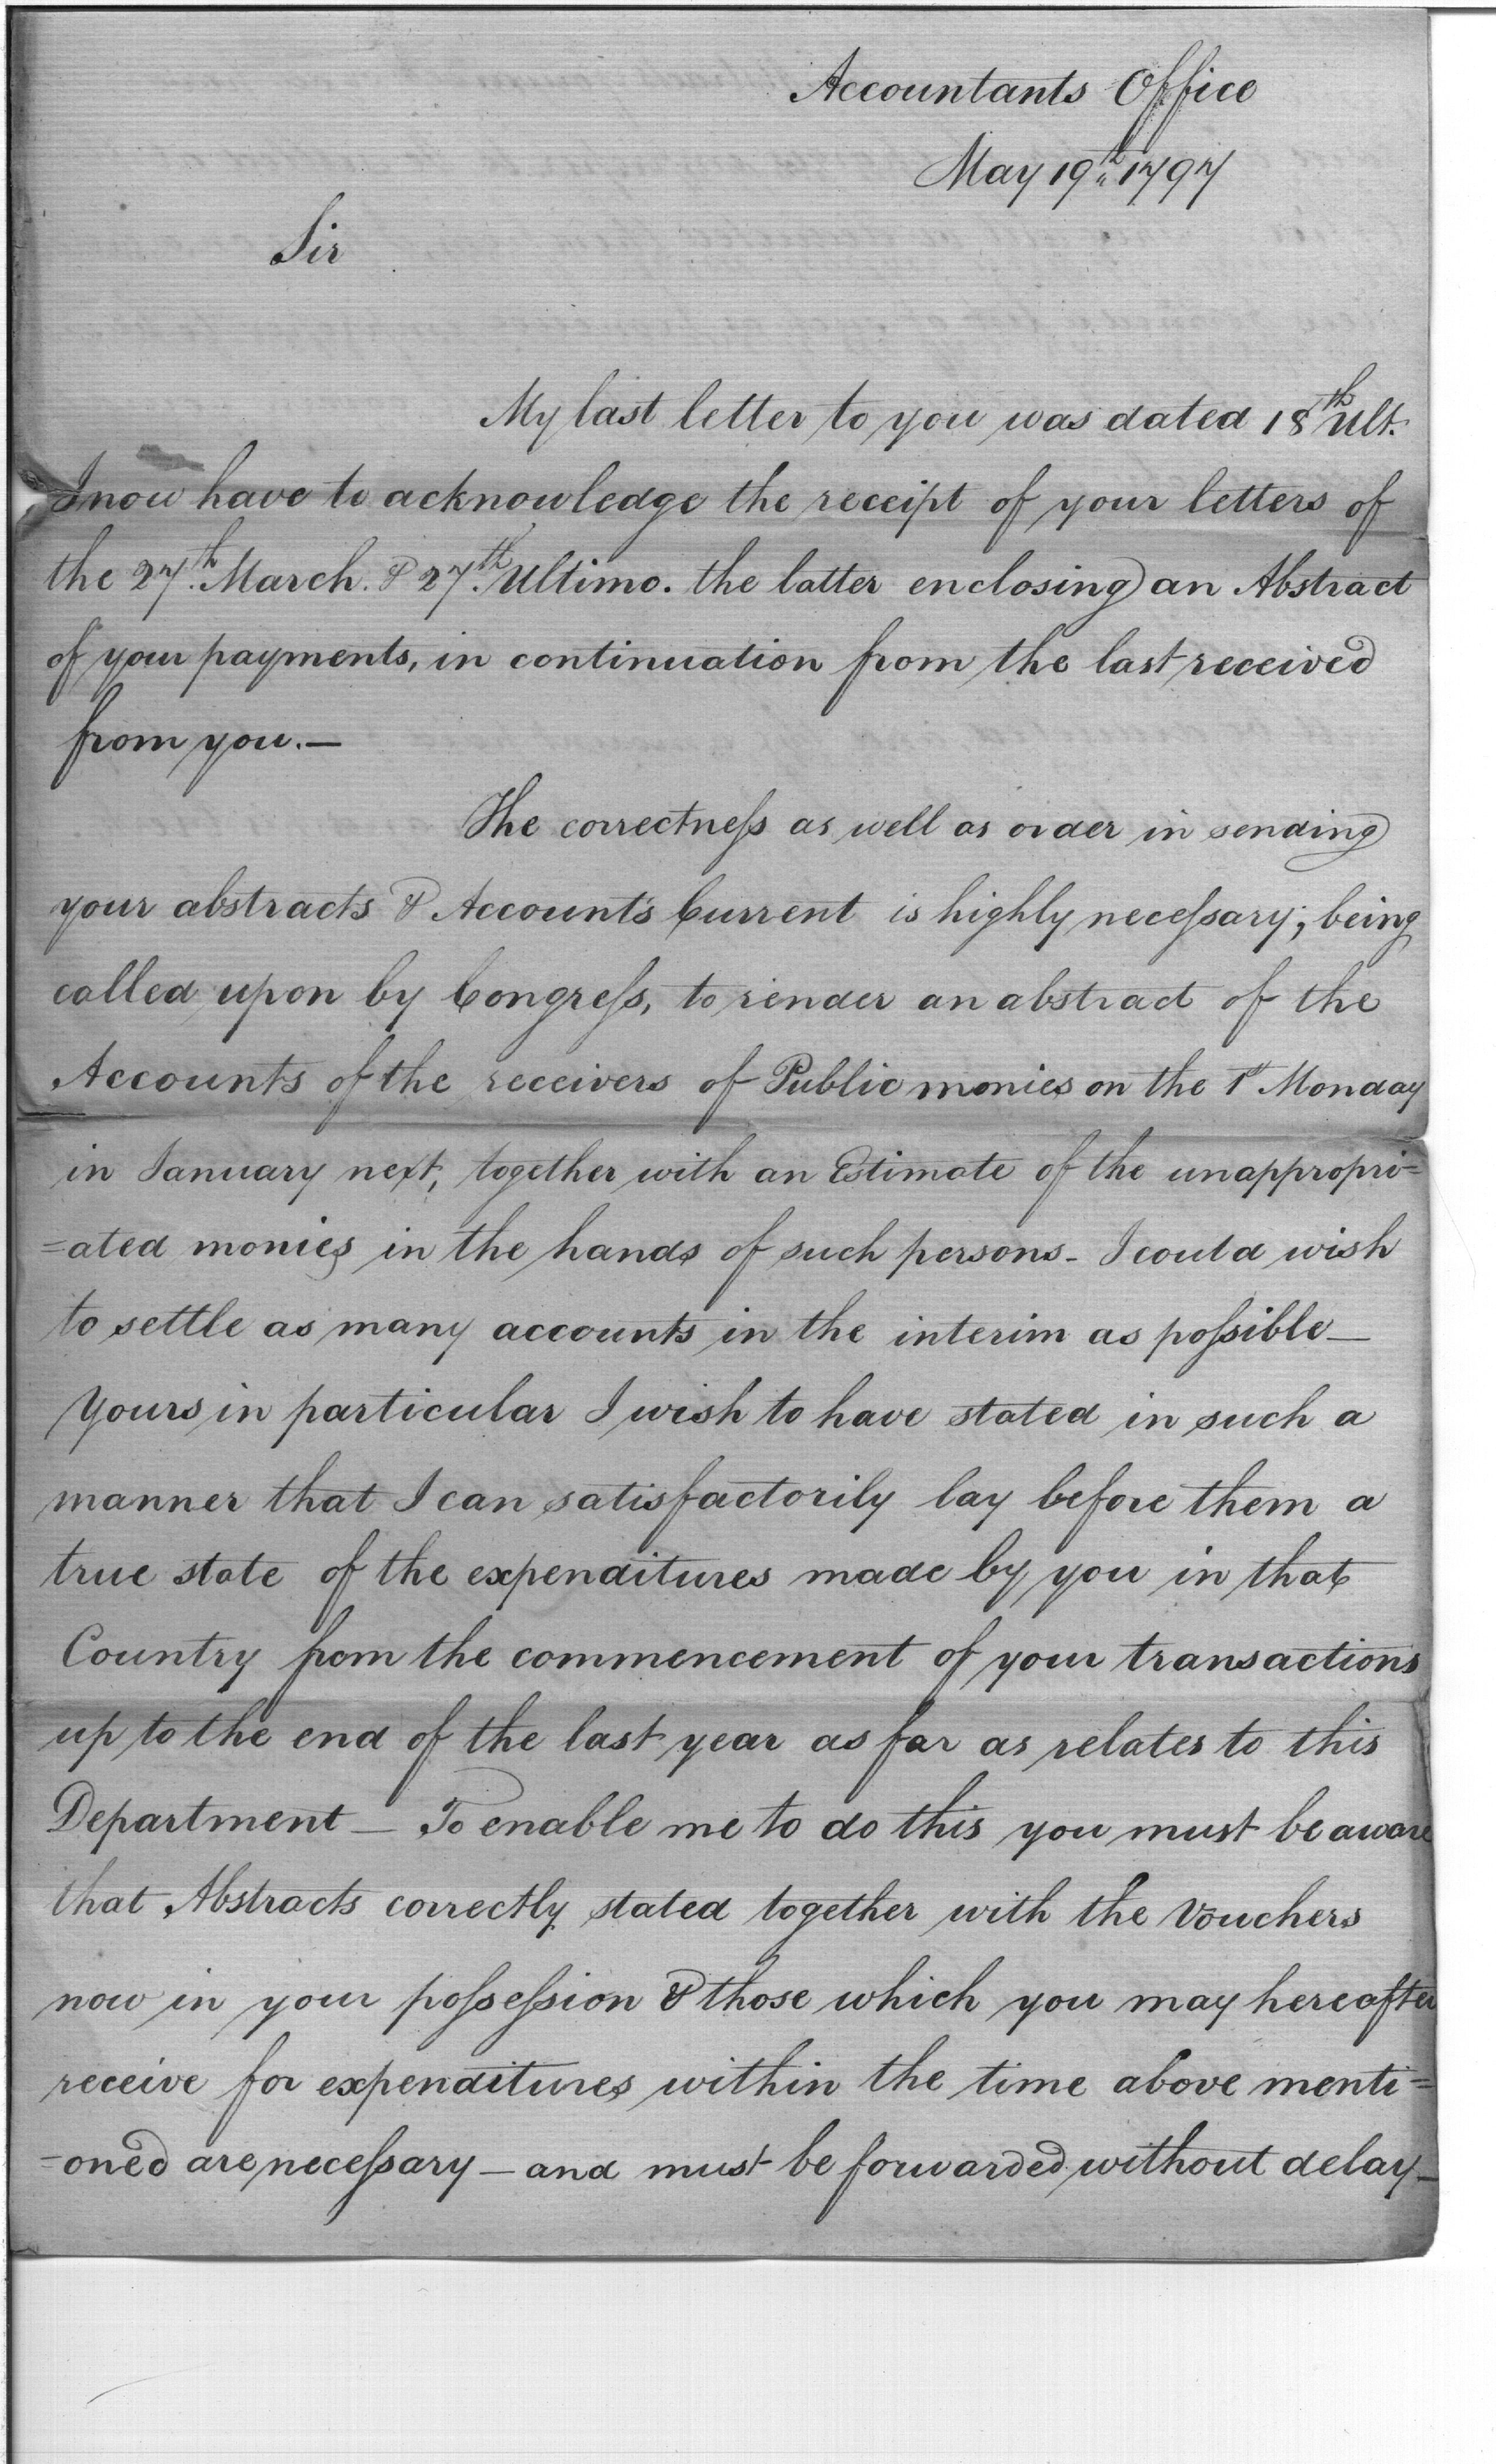 Accountants Office
May 19th 1797
Sir
My last letter to you was dated 18th Ult.
I now have to acknowledge the receipt of your letters of
the 27th. March. & 27th. Ultimo. the latter enclosing an Abstract
of your payments, in continuation from the last received
from you.—
The correctneſs as well as order in sending
your abstracts & Accounts Current is highly neceſsary; being
called upon by Congreſs, to render an abstract of the
Accounts of the receivers of Public monies on the 1st Monday
in January next, together with an Estimate of the unappropri=
=ated monies in the hands of such persons - I could wish
to settle as many accounts in the interim as poſsible—
Yours in particular I wish to have stated in such a
manner that I can satisfactorily lay before them a
true state of the expenditures made by you in that
Country from the commencement of your transactions
up to the end of the last year as far as relates to this
Department — To enable me to do this you must be aware
that Abstracts correctly stated together with the Vouchers
now in your poſseſsion & those which you may hereafter
receive for expenditures within the time above menti=
=oned are neceſsary — and must be forwarded without delay—